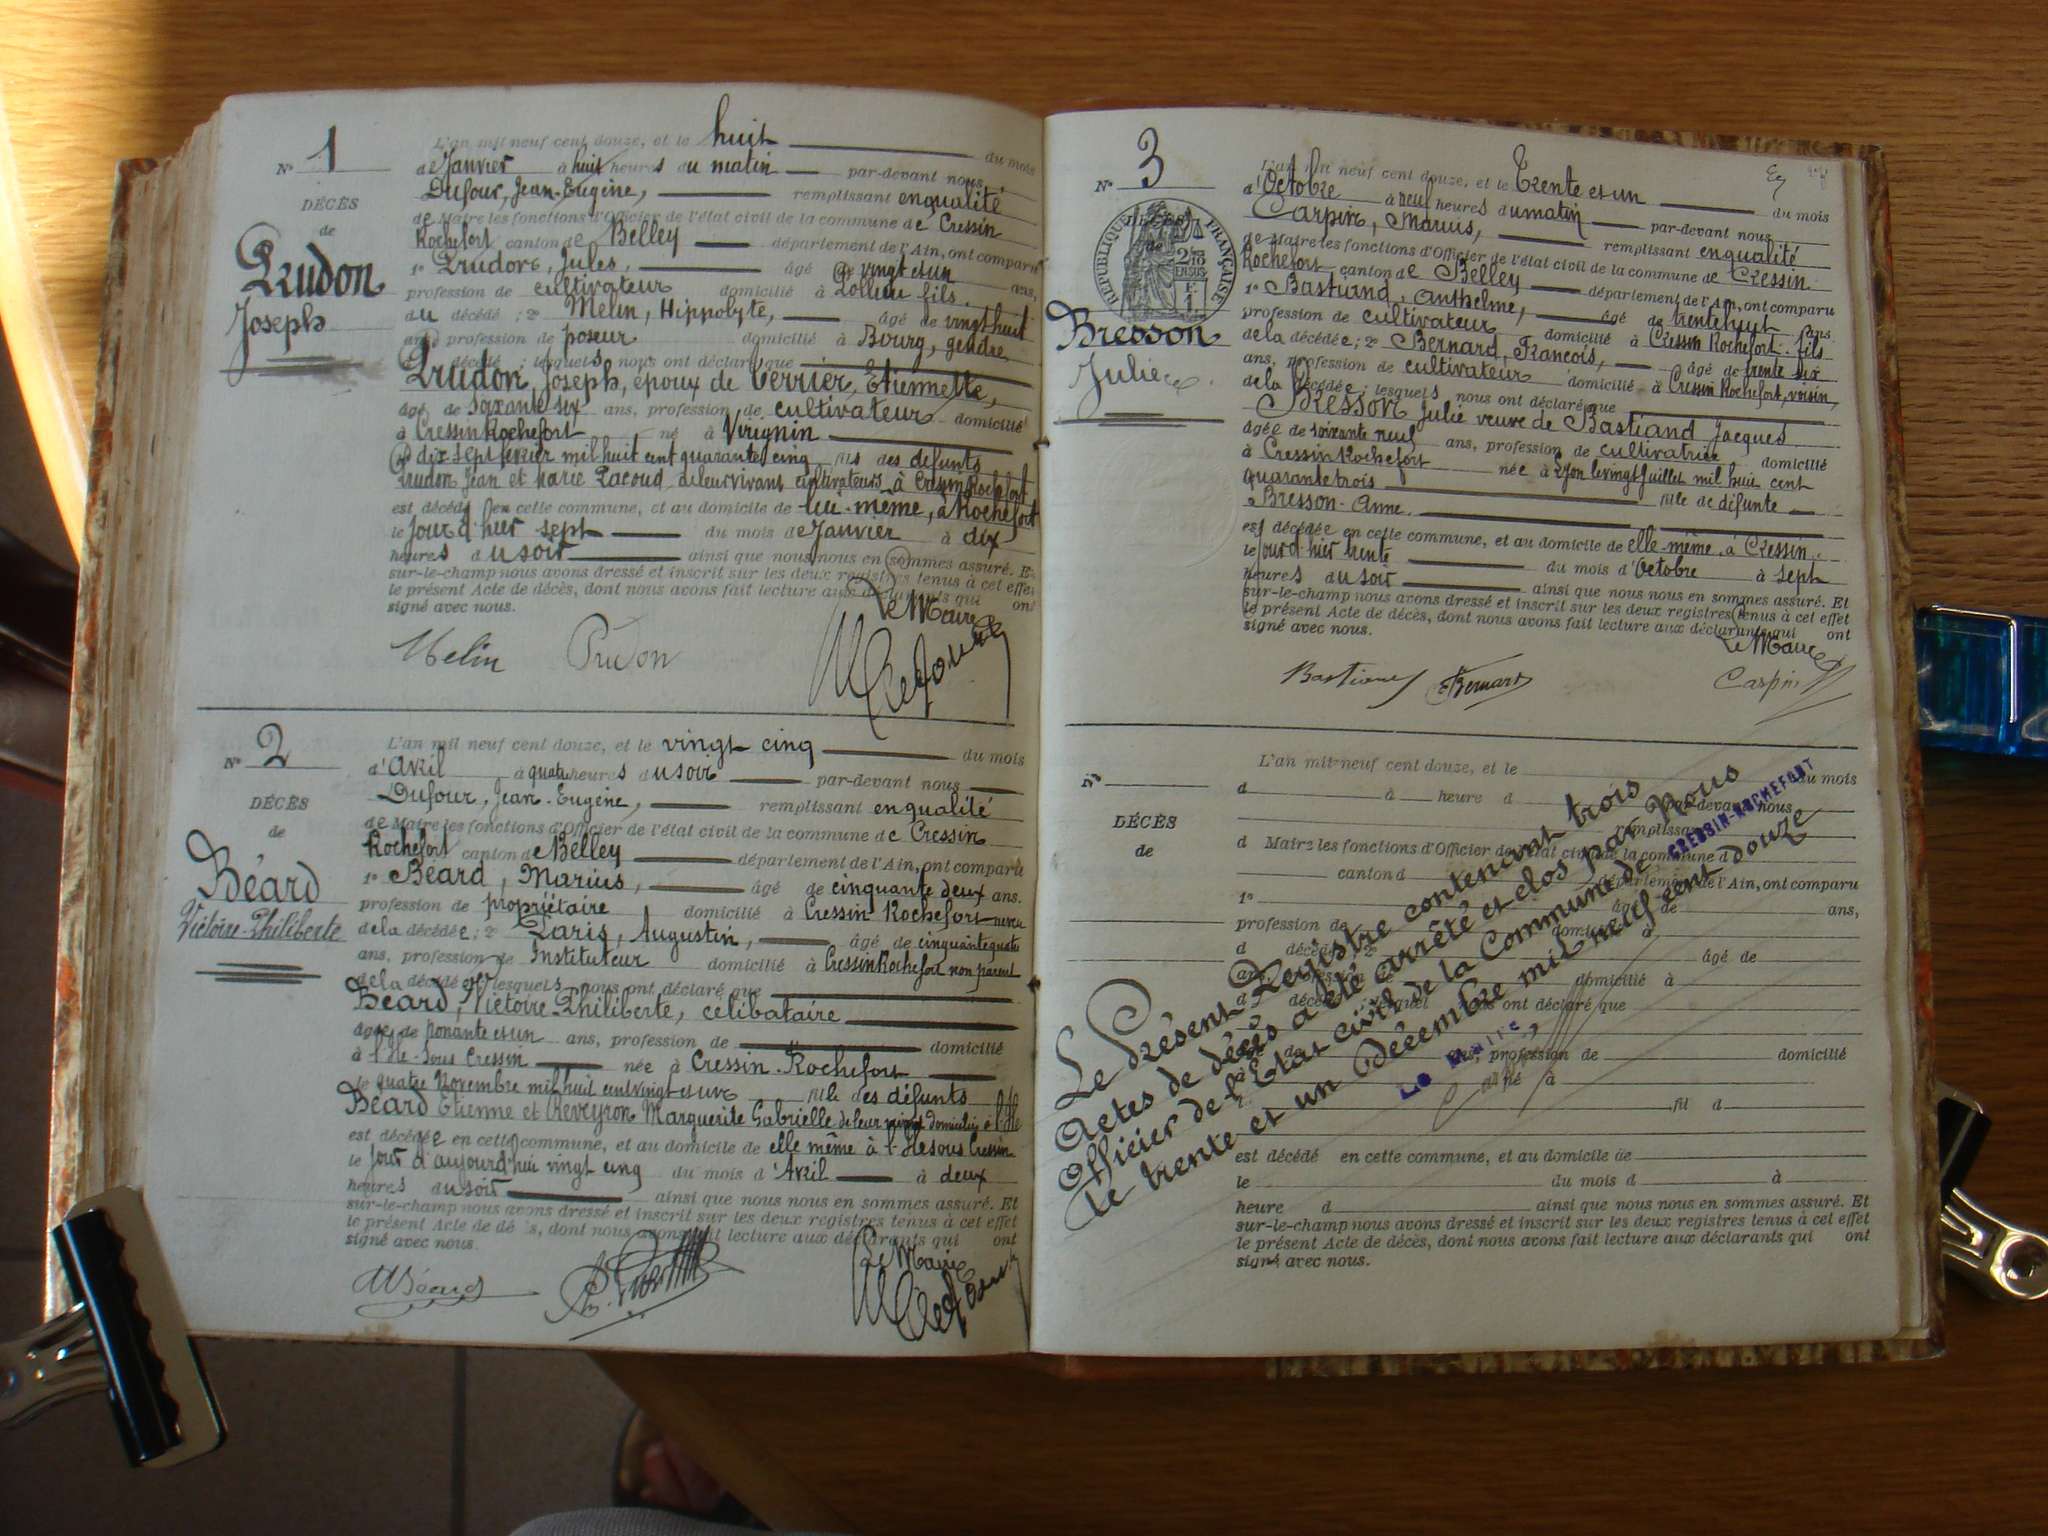 N° 1
DÉCÈS
de
Prudon
Joseph
L'an mil neuf cent douze, et le huit du mois
de Janvier à huit heures du matin par-devant nous
Dufour, Jean-Eugène, remplissant en qualité
de Maire les fonctions d'Officier de l'état civil de la commune de Cressin
Rochefort canton de Belley département de l'Ain, ont comparu
1° Prudon, Jules, âgé de vingt et un ans,
profession de cultivateur domicilié à Lolleu fils
du décédé ; 2° Melin, Hippolyte, âgé de vingt huit
ans, profession de poseur domicilié à Bourg, gendre
décédé ; lesquels nous ont déclaré que
Prudon, Joseph, époux de Verrier, Etiennette,
âgé de soixante six ans, profession de cultivateur domicilié
à Cressin Rochefort né à Virignin
le dix sept février mil huit cent quarante cinq fils des défunts
Prudon Jean et Marie Pacoud, de leur vivant cultivateurs à Cressin Rochefort
est décédé en cette commune, et au domicile de lui-même, à Rochefort
le jour d'hier sept du mois de Janvier à dix
heures du soir ainsi que nous nous en sommes assuré. Et
sur-le-champ nous avons dressé et inscrit sur les deux registres tenus à cet effet
le présent Acte de décès, dont nous avons fait lecture aux déclarants qui ont
signé avec nous.
Le Maire
Melin Prudon
N° 2
DÉCÈS
de
Béard
Victoire-Philiberte
L'an mil neuf cent douze, et le vingt cinq du mois
d'Avril à quatre heures du soir par-devant nous
Dufour, Jean-Eugène, remplissant en qualité
de Maire les fonctions d'Officier de l'état civil de la commune de Cressin
Rochefort canton de Belley département de l'Ain, ont comparu
1° Béard, Marius, âgé de cinquante deux ans.
profession de propriétaire domicilié à Cressin Rochefort neveu
de la décédée ; 2° Paris, Augustin, âgé de cinquante quatre
ans, profession de Instituteur domicilié à Cressin Rochefort non parent
de la décédée lesquels nous ont déclaré que
Béard, Victoire Philiberte, célibataire
âgée de nonante et un ans, profession de domicilié
à l'Ile-sous Cressin née à Cressin-Rochefort
le quatre Novembre mil huit cent vingt et un fille des défunts
Béard Etienne et Reveyron Marguerite Gabrielle de leur vivant domiciliés à l'Ile
est décédée en cette commune, et au domicile de elle même à l'Ile sous Cressin
le jour d'aujourd'hui vingt cinq du mois d'Avril à deux
heures du soir ainsi que nous nous en sommes assuré. Et
sur-le-champ nous avons dressé et inscrit sur les deux registres tenus à cet effet
le présent Acte de décès, dont nous avons fait lecture aux déclarants qui ont
signé avec nous.
Le Maire
N° 3
RÉPUBLIQUE FRANÇAISE
DÉCÈS
de
Bresson
Julie
L'an mil neuf cent douze, et le Trente et un du mois
d'Octobre à neuf heures du matin par-devant nous
Carpin, Marius, remplissant en qualité
de Maire les fonctions d'Officier de l'état civil de la commune de Cressin
Rochefort canton de Belley département de l'Ain, ont comparu
1° Bastiand, Anthelme, âgé de trente huit ans
profession de cultivateur domicilié à Cressin Rochefort fils
de la décédée ; 2° Bernard, François, âgé de trente six
ans, profession de cultivateur domicilié à Cressin Rochefort, voisin,
de la décédée ; lesquels nous ont déclaré que
Bresson Julie veuve de Bastiand Jacques
âgée de soixante neuf ans, profession de cultivatrice domicilié
à Cressin Rochefort née à Lyon le vingt Juillet mil huit cent
quarante trois fille de défunte
Bresson-Anne
est décédée en cette commune, et au domicile de elle-même, à Cressin
le jour d'hier trente du mois d'Octobre à sept
heures du soir ainsi que nous nous en sommes assuré. Et
sur-le-champ nous avons dressé et inscrit sur les deux registres tenus à cet effet
le présent Acte de décès, dont nous avons fait lecture aux déclarants qui ont
signé avec nous.
Le Maire
Bastiand Bernard Carpin
N°
DÉCÈS
de
L'an mil-neuf cent douze, et le du mois
d à heure d par-devant nous
remplissant
d Maire les fonctions d'Officier de l'état civil de la commune d
canton d département de l'Ain, ont comparu
1° âgé de ans,
profession de domicilié à
d décédé ; 2° âgé de
ans, profession domicilié à
d décédé ; lesquel nous ont déclaré que
âgé de ans, profession de domicilié
à né à
fil d
est décédé en cette commune, et au domicile de
le du mois d à
heure d ainsi que nous nous en sommes assuré. Et
sur-le-champ nous avons dressé et inscrit sur les deux registres tenus à cet effet
le présent Acte de décès, dont nous avons fait lecture aux déclarants qui ont
signé avec nous.
Le Présent Registre contenant trois
Actes de décès a été arrêté et clos par Nous
Officier de l'Etat civil de la Commune de CRESSIN-ROCHEFORT
le trente et un Décembre mil neuf cent douze
Le Maire,